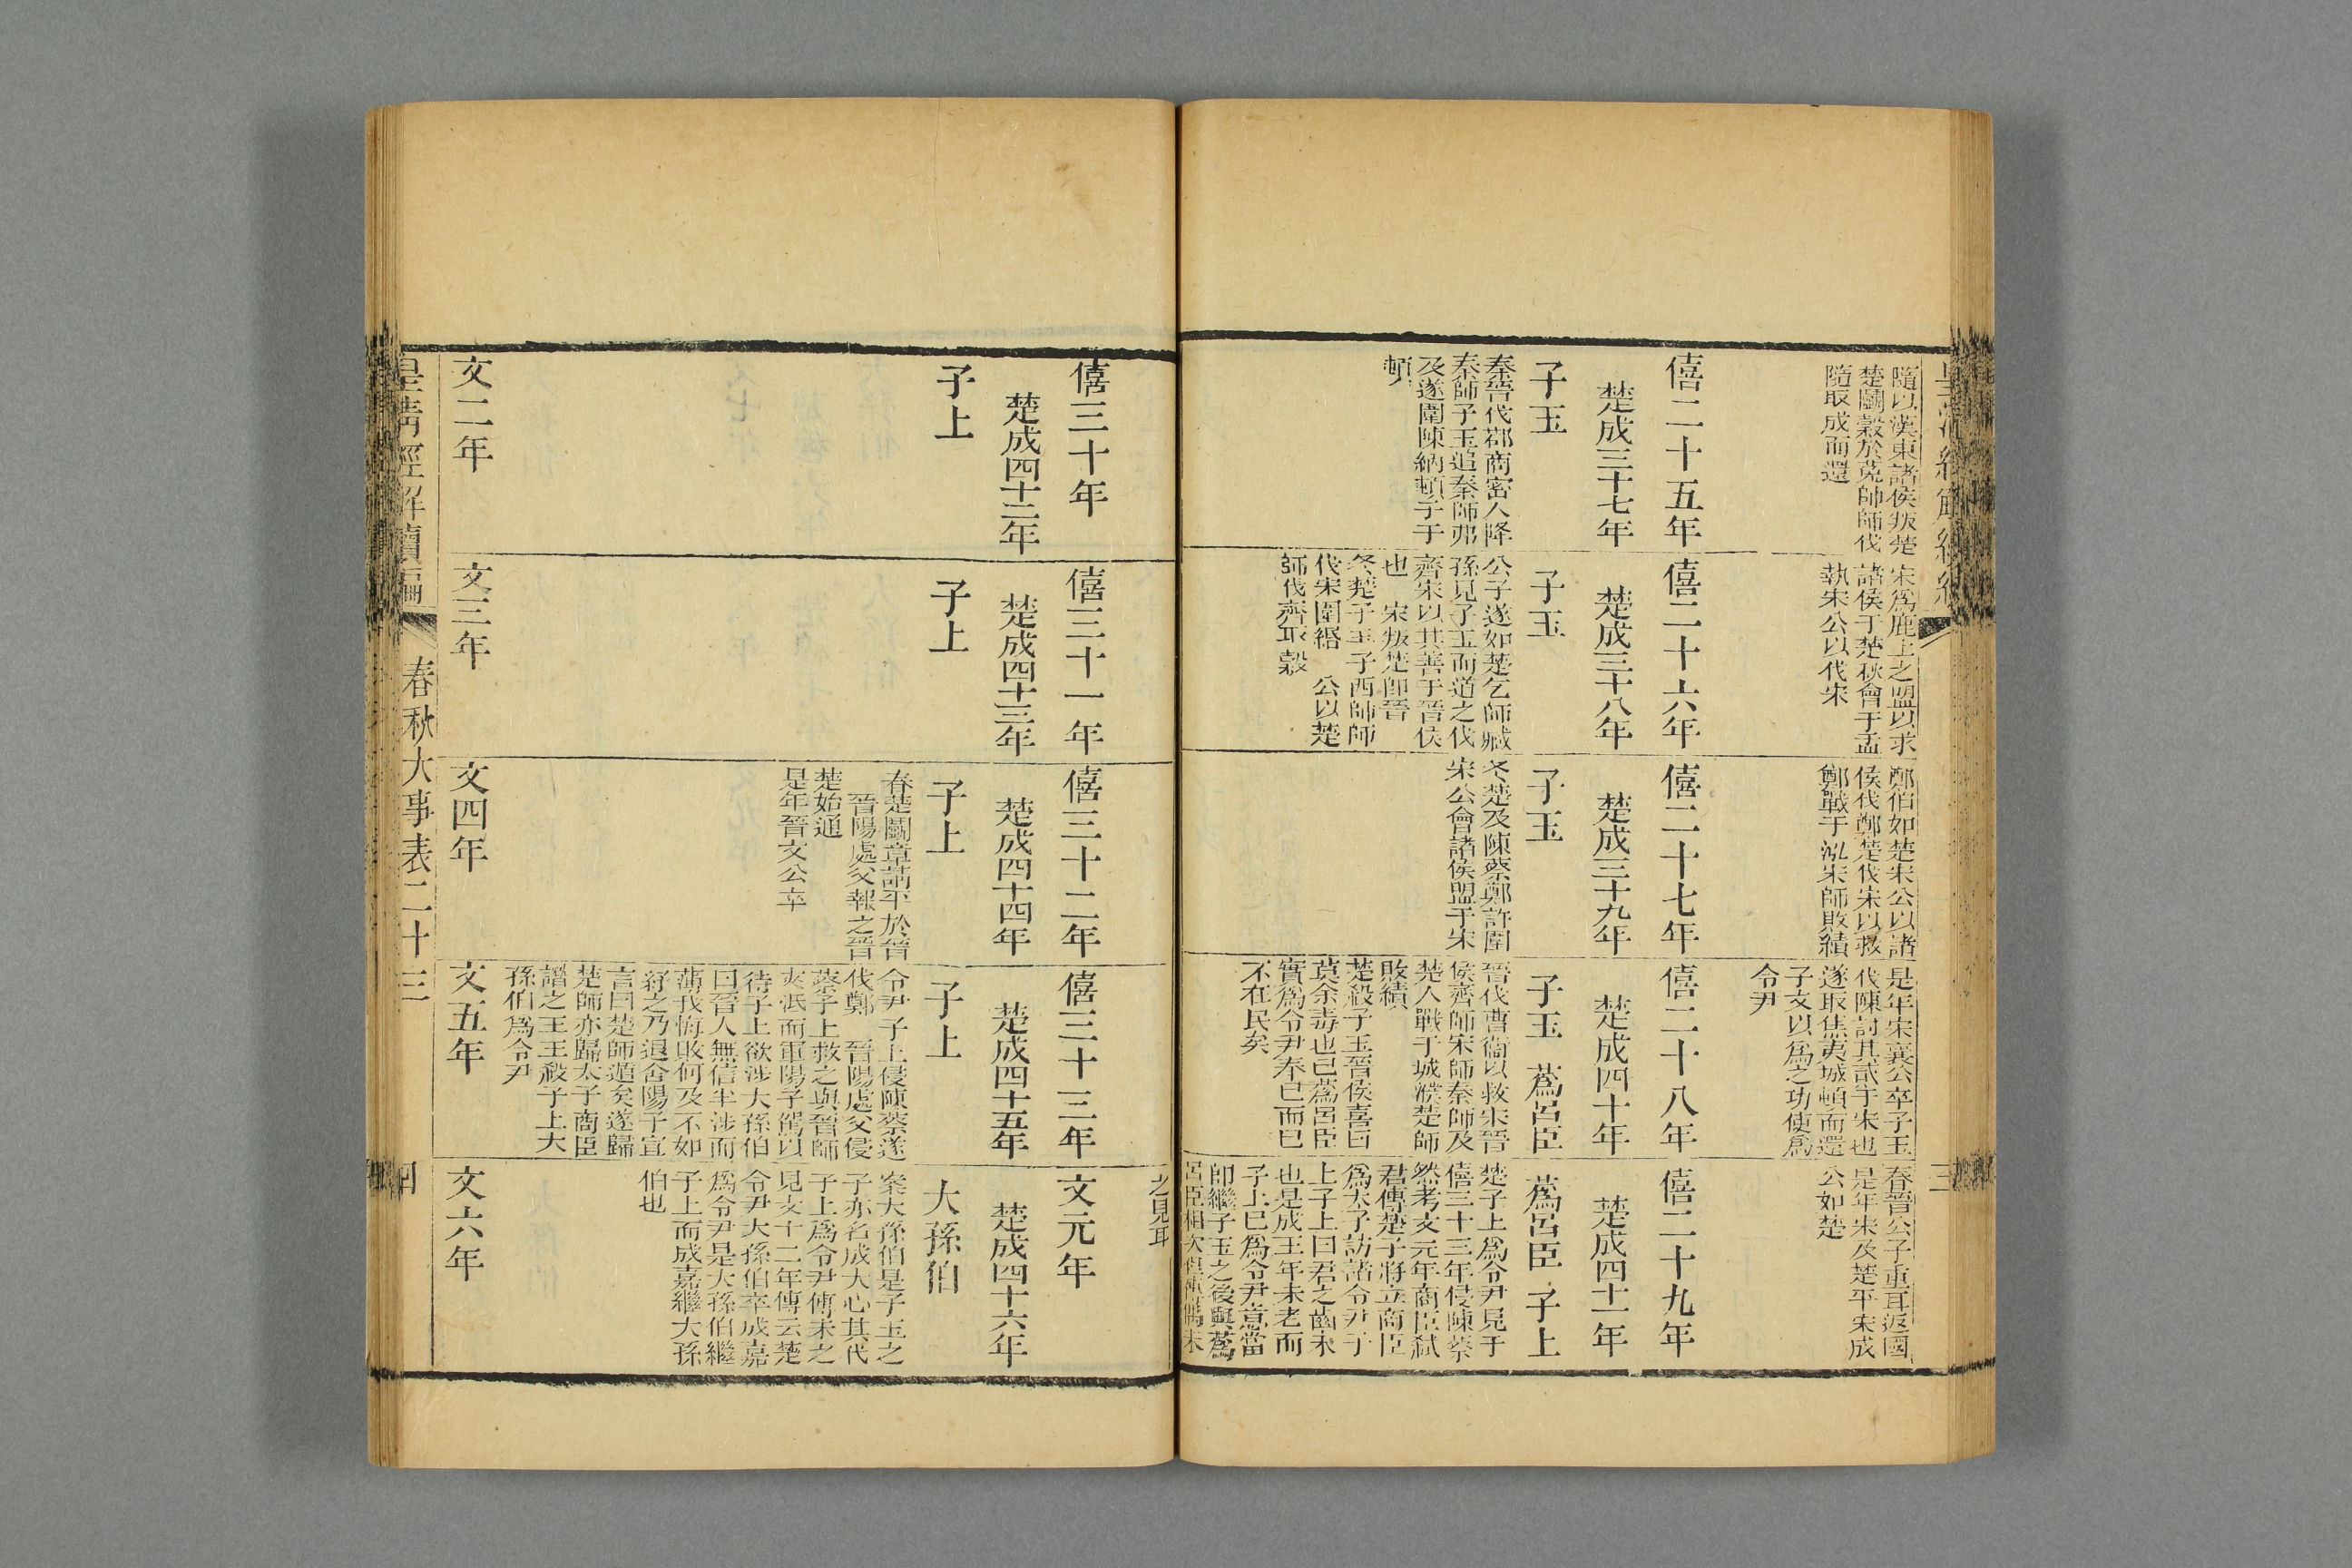 隨以漢東諸侯叛楚
楚鬬穀於菟帥師伐
隨取成而還
宋爲鹿上之盟以求
諸侯于楚秋會于盂
執宋公以伐宋
鄭伯如楚宋公以諸
侯伐鄭楚伐宋以救
鄭戰于泓宋師敗績
是年宋襄公卒子玉
伐陳討其貳于宋也
遂取焦夷城頓而還
子文以爲之功使爲
令尹
春晉公子重耳返國
是年宋及楚平宋成
公如楚
僖二十五年
楚成三十七年
子玉
秦晉伐鄀商密人降
秦師子玉追秦師弗
及遂圍陳納頓子于
頓
僖二十六年
楚成三十八年
子玉
公子遂如楚乞師臧
孫見子玉而道之伐
齊宋以其善于晉侯
也 宋叛楚卽晉
冬楚子玉子西帥師
伐宋圍緡 公以楚
師伐齊取穀
僖二十七年
楚成三十九年
子玉
冬楚及陳蔡鄭許圍
宋公會諸侯盟于宋
僖二十八年
楚成四十年
子玉 蒍呂臣
晉伐曹衞以救宋晉
侯齊師宋師秦師及
楚人戰于城濮楚師
敗績
楚殺子玉晉侯喜曰
莫余毒也已蒍呂臣
實爲令尹奉己而已
不在民矣
僖二十九年
楚成四十一年
蒍呂臣 子上
楚子上爲令尹見于
僖三十三年侵陳蔡
然考文元年商臣弑
君傳楚子將立商臣
爲太子訪諸令尹子
上子上曰君之齒未
也是成王年未老而
子上已爲令尹意當
卽繼子玉之後與蒍
呂臣相次但傳偶未
之見耳
僖三十年
楚成四十二年
子上
僖三十一年
楚成四十三年
子上
僖三十二年
楚成四十四年
子上
春楚鬬章請平於晉
晉陽處父報之晉
楚始通
是年晉文公卒
僖三十三年
楚成四十五年
子上
令尹子上侵陳蔡遂
伐鄭 晉陽處父侵
蔡子上救之與晉師
夾泜而軍陽子駕以
待子上欲涉大孫伯
曰晉人無信半涉而
薄我悔敗何及不如
紓之乃退舍陽子宣
言曰楚師遁矣遂歸
楚師亦歸太子商臣
譖之王王殺子上大
孫伯爲令尹
文元年
楚成四十六年
大孫伯
案大孫伯是子玉之
子亦名成大心其代
子上爲令尹傳未之
見文十二年傳云楚
令尹大孫伯卒成嘉
爲令尹是大孫伯繼
子上而成嘉繼大孫
伯也
文二年
文三年
文四年
文五年
文六年
皇淸經解續編
春秋大事表二十三
四